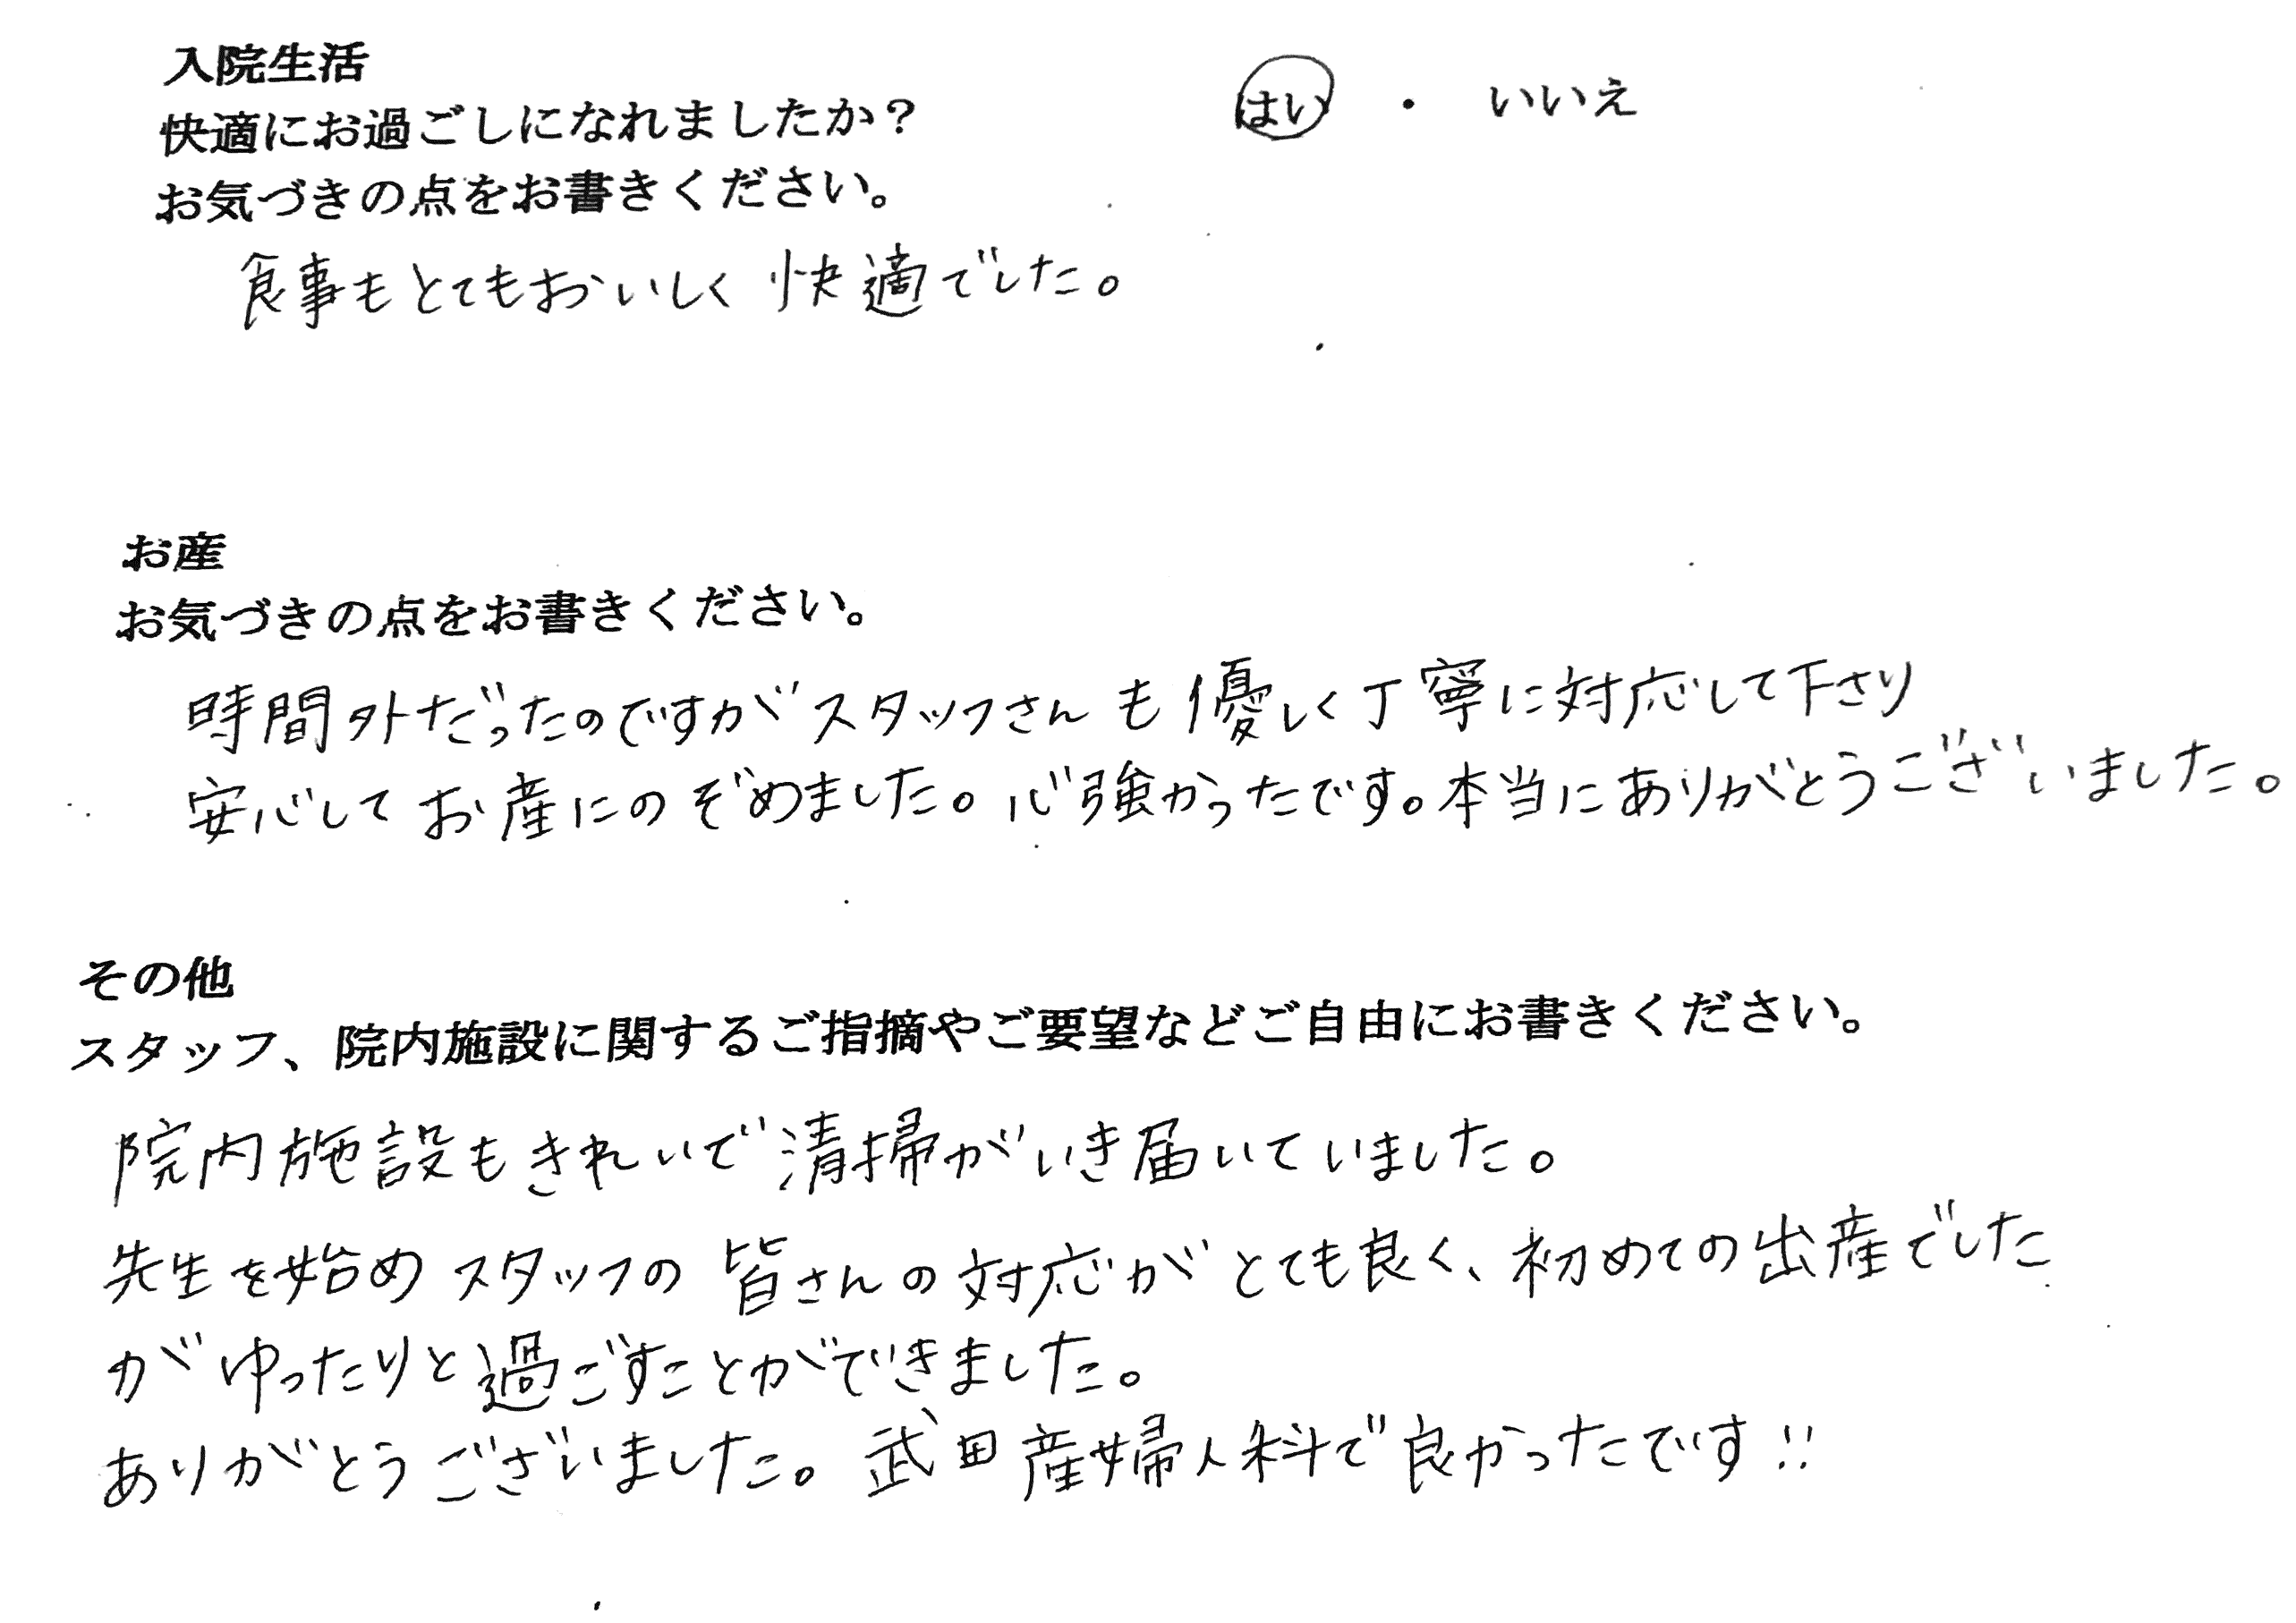 入院生活
快適にお過ごしになれましたか？ はい ・ いいえ
お気づきの点をお書きください。
食事もとてもおいしく快適でした。
お産
お気づきの点をお書きください。
時間外だったのですがスタッフさんも優しく丁寧に対応して下さり
安心してお産にのぞめました。心強かったです。本当にありがとうございました。
その他
スタッフ、院内施設に関するご指摘やご要望などご自由にお書きください。
院内施設もきれいで清掃がいき届いていました。
先生を始めスタッフの皆さんの対応がとても良く、初めての出産でした
がゆったりと過ごすことができました。
ありがとうございました。武田産婦人科で良かったです!!